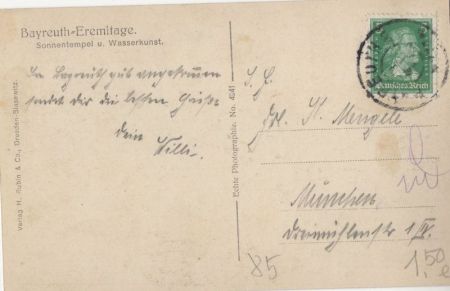 Bayreuth-Eremitage.
Sonnentempel u. Wasserkunst.
In Bayreuth gut angekommen
sendet Dir die besten Grüße
Dein Willi.
Verlag H. Rubin & Co., Dresden-Blasewitz.
Echte Photographie. No. 4241
Deutsches Reich
S. H.
H. Mengele
München
1/IV.
85
1,50